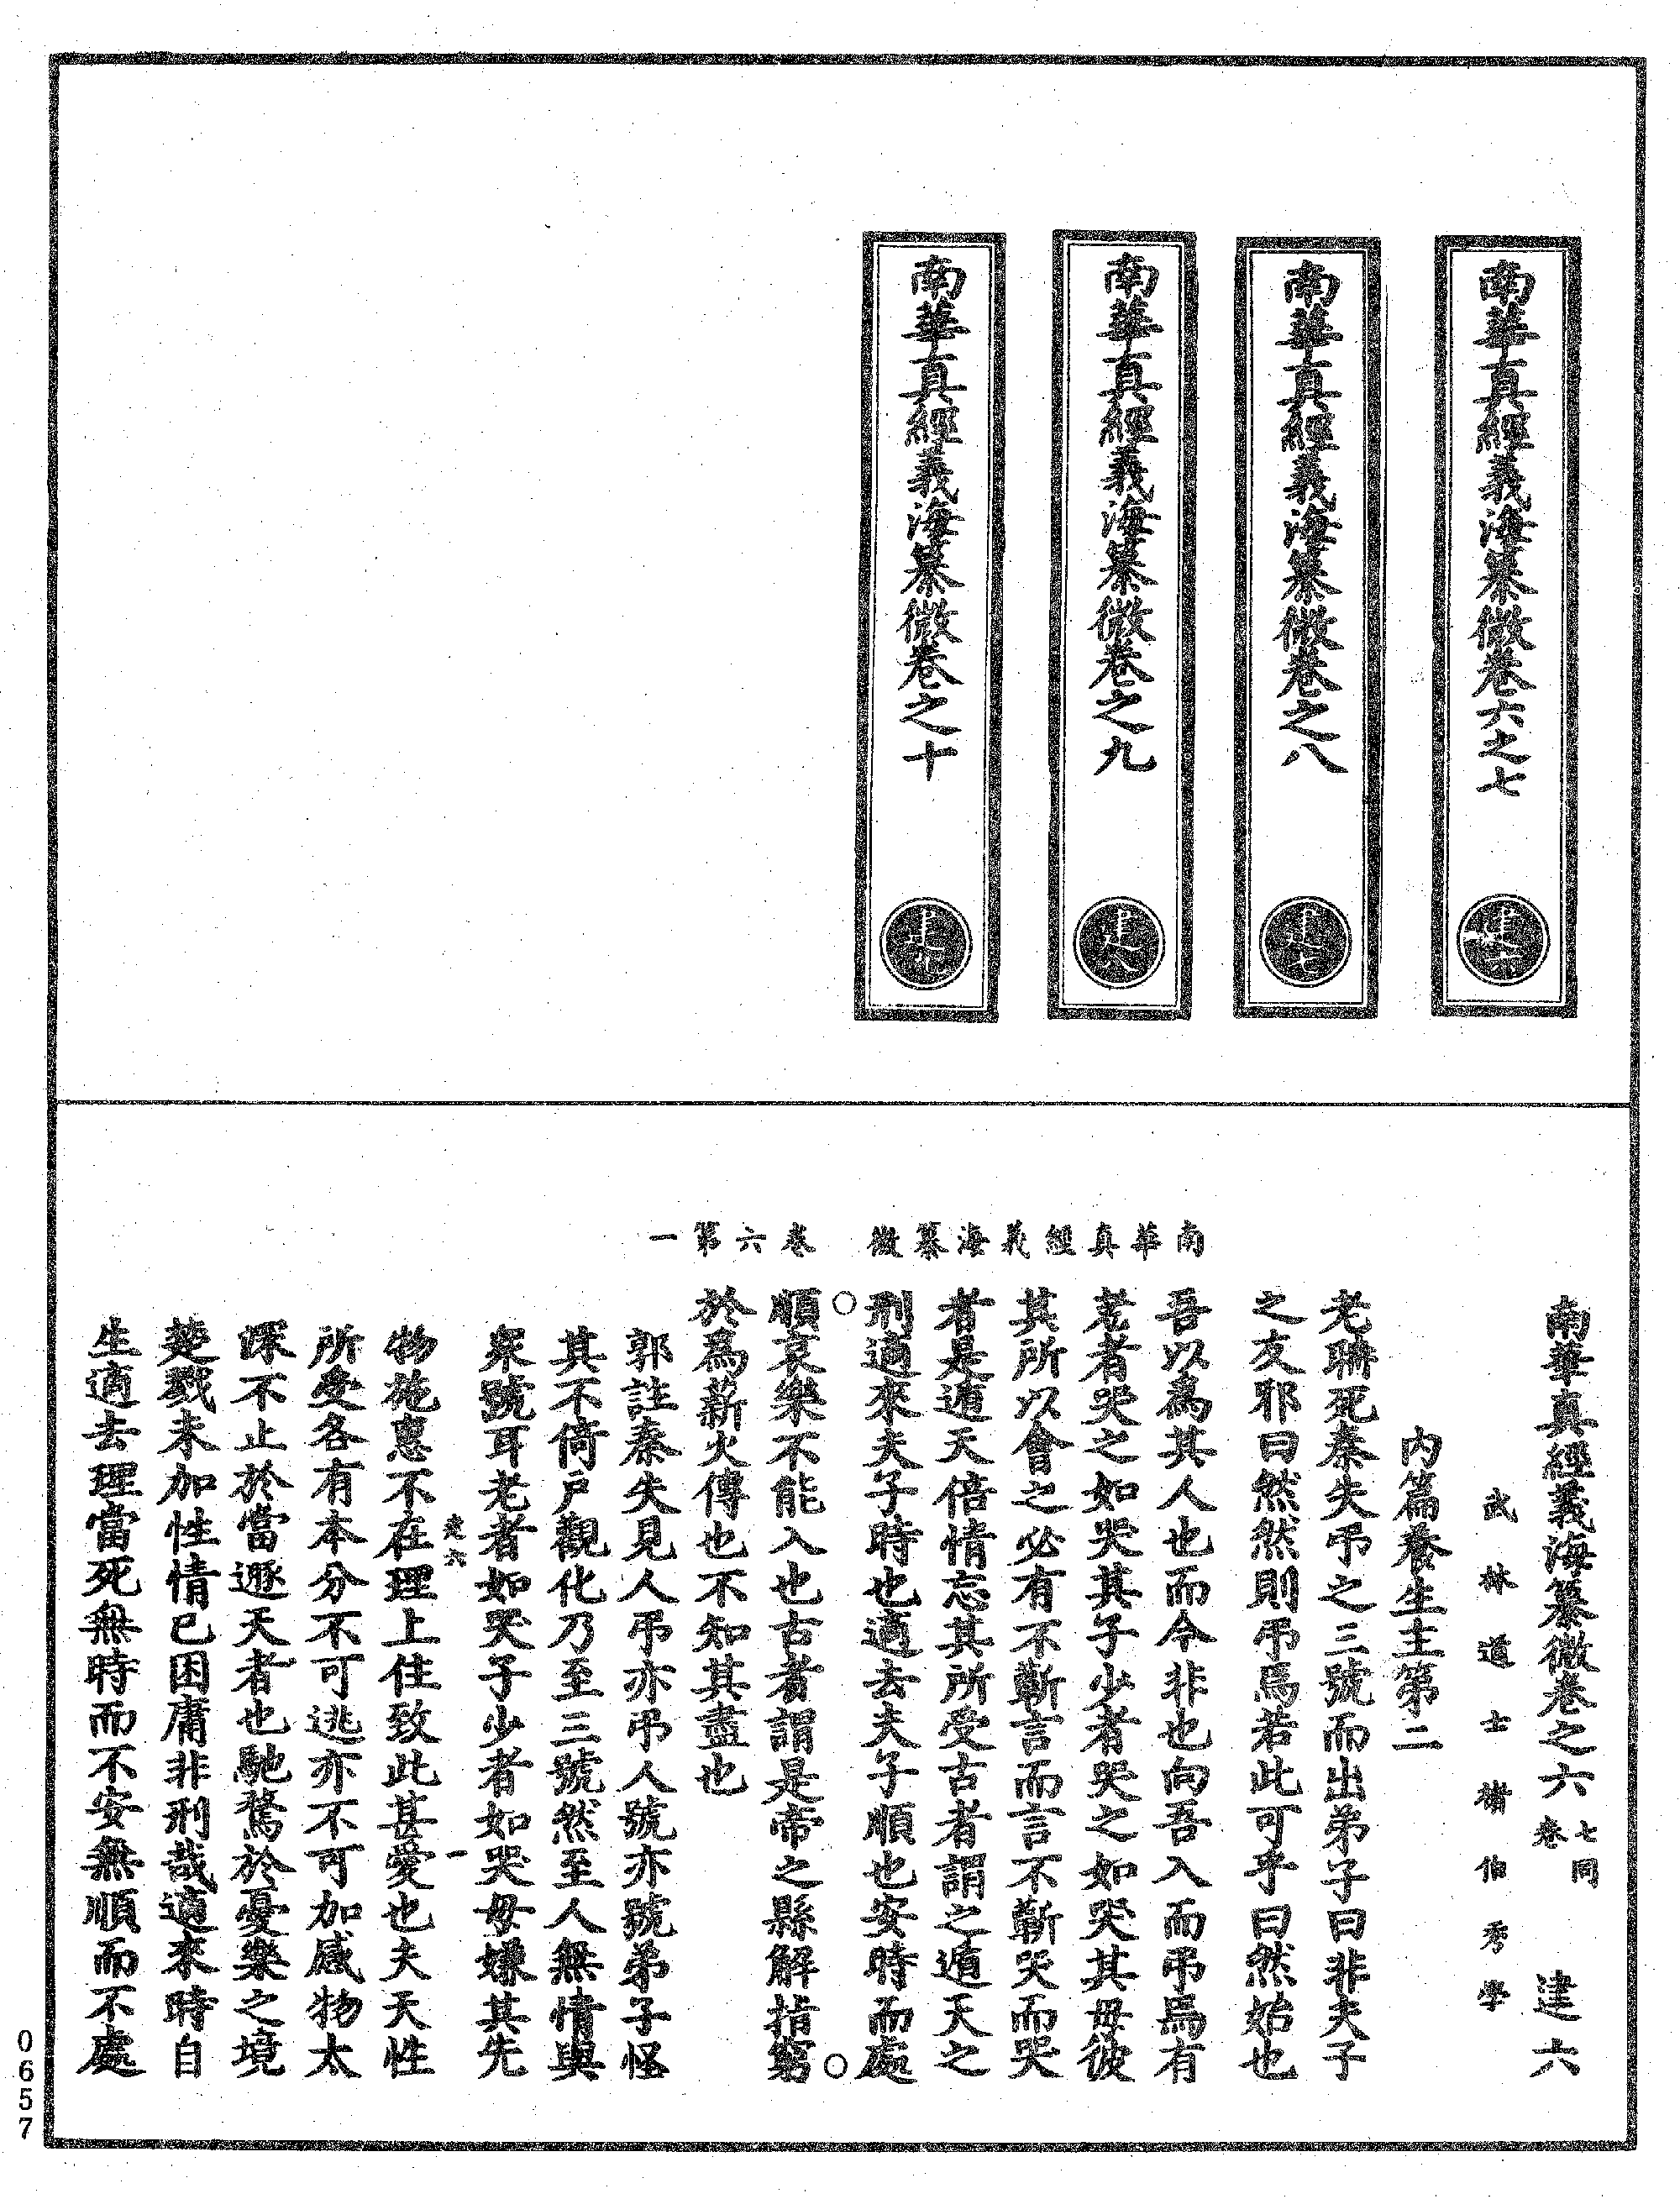 南華真經義海纂微卷六之七
建六
南華真經義海纂微卷之八
建七
南華真經義海纂微卷之九
建八
南華真經義海纂微卷之十
建九
南華真經義海纂微 卷六第一
南華真經義海纂微卷之六 七同卷 建六
武林道士褚伯秀學
內篇養生主第二
老聃死秦失弔之三號而出弟子曰非夫子
之友耶曰然然則弔焉若此可乎曰然始也
吾以為其人也而今非也向吾入而弔焉有
老者哭之如哭其子少者哭之如哭其母彼
其所以會之必有不蘄言而言不蘄哭而哭
者是遁天倍情忘其所受古者謂之遁天之
刑適來夫子時也適去夫子順也安時而處
順哀樂不能入也古者謂是帝之縣解指窮
於為薪火傳也不知其盡也
郭註秦失見人弔亦弔人號亦號弟子怪
其不倚戶觀化乃至三號然至人無情與
眾號耳老者如哭子少者如哭母嫌其先
建六 一
物施惠不在理上住致此甚愛也夫天性
所受各有本分不可逃亦不可加感物太
深不止於當遯天者也馳騖於憂樂之境
楚戮未加性情已困庸非刑哉適來時自
生適去理當死無時而不安無順而不處
0657